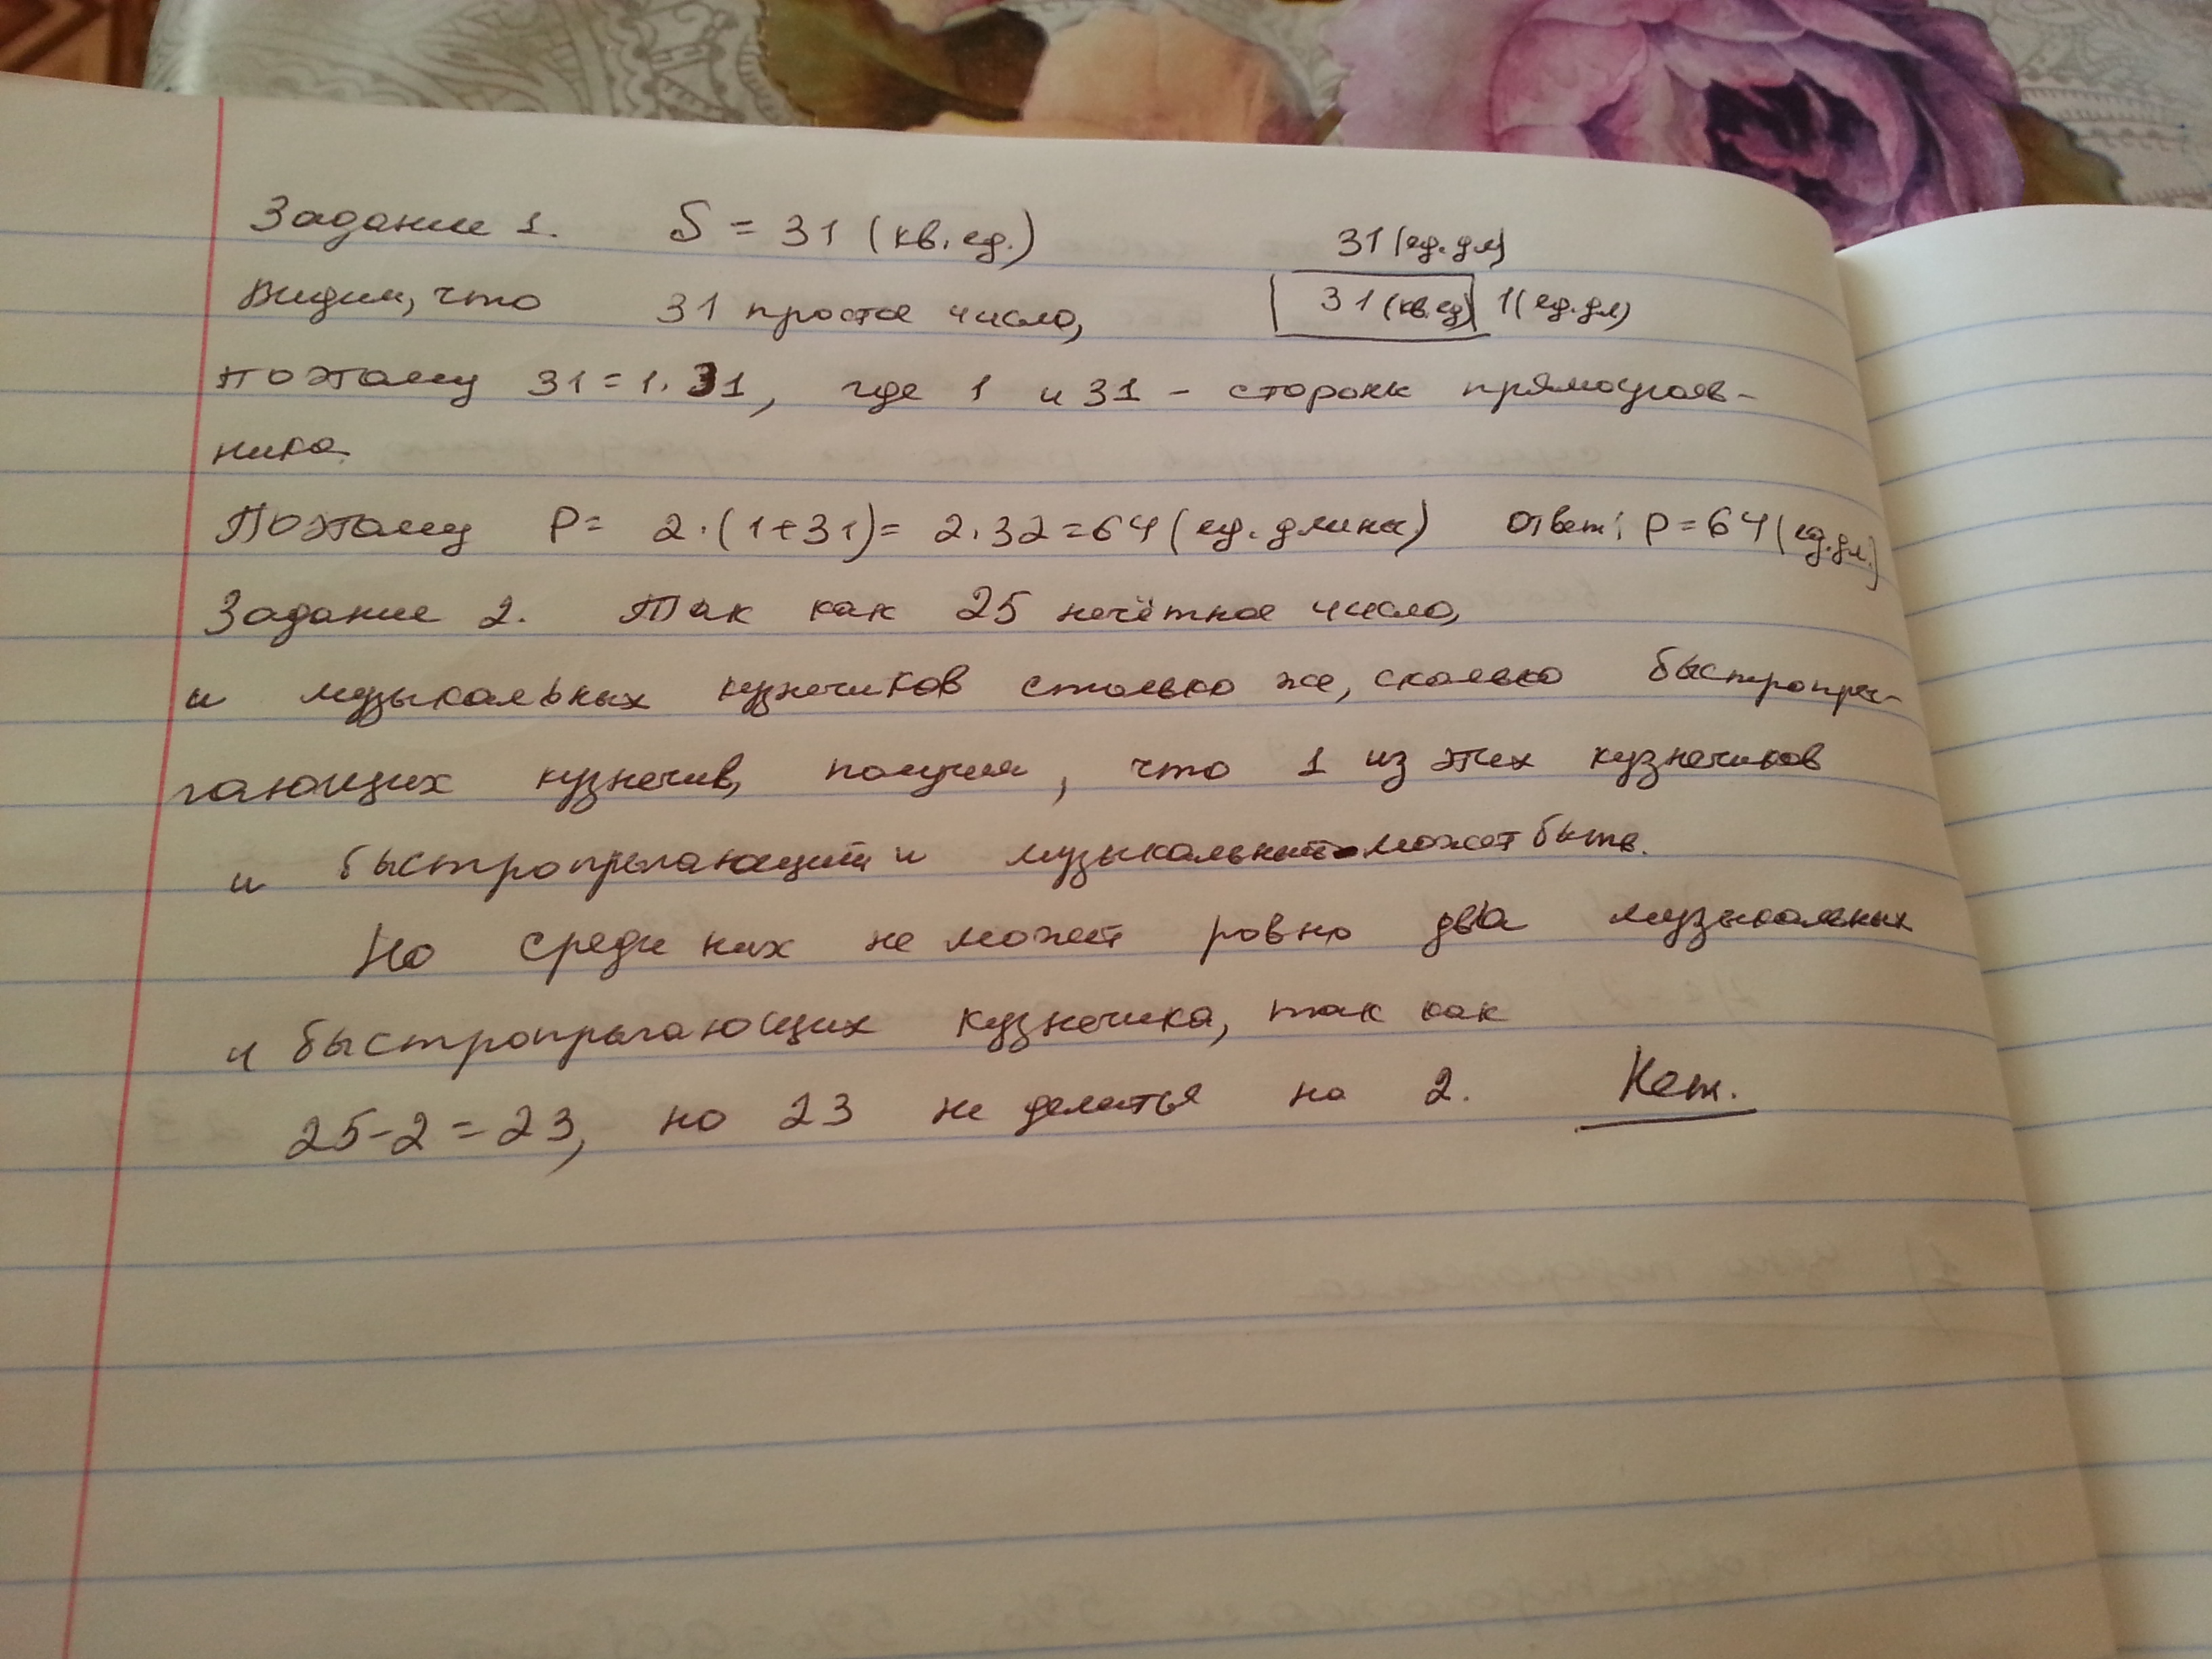 Задание 1. S = 31 (кв. ед.)
31 (ед. дл)
Видим, что 31 простое число,
31 (кв. ед) 1 (ед. дл)
поэтому 31 = 1 · 31, где 1 и 31 - стороны прямоугол-
ника.
Поэтому P = 2 · (1+31) = 2 · 32 = 64 (ед. длины) Ответ: P = 64 (ед. дл.)
Задание 2. Так как 25 нечётное число,
и музыкальных кузнечиков столько же, сколько быстропры-
гающих кузнечив, получим, что 1 из этих кузнечиков
и быстропрыгающий и музыкальный может быть.
Но среди них не может ровно два музыкальных
и быстропрыгающих кузнечика, так как
25-2=23, но 23 не делиться на 2. Нет.